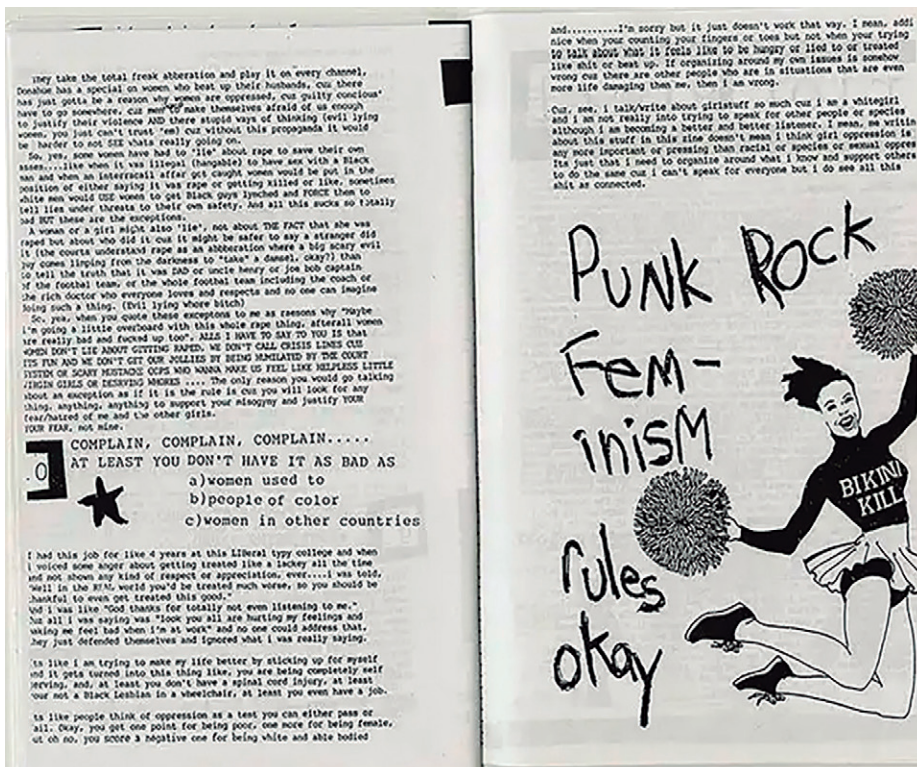 They take the total freak abberation and play it on every channel,
Donahoe has a special on women who beat up their husbands, cuz there
has just gotta be a reason why women are oppressed, cuz guilty concious'
have to go somewhere, cuz men make themselves afraid of us enough
to justify their violence AND there stupid ways of thinking (evil lying
women, you just can't trust 'em) cuz without this propaganda it would
be harder to not SEE whats really going on.
So, yes, some women have had to 'lie' about rape to save their own
asses.....like when it was illegal (hangable) to have sex with a Black
man and when an interracail affar got caught women would be put in the
position of either saying it was rape or getting killed or like, sometimes
white men would USE women to get Black guys lynched and FORCE them to
tell lies under threats to their own safety. And all this sucks so totally
bad BUT these are the exceptions.
A woman or a girl might also 'lie', not about THE FACT that she was
raped but about who did it cuz it might be safer to say a stranger did
it (the courts understand rape as an abberation where a big scary evil
guy comes linping from the darkness to "take" a damsel, okay?) than
to tell the truth that it was DAD or uncle henry or joe bob captain
of the footbal team, or the whole footbal team including the coach or
the rich doctor who everyone loves and respects and no one can imagine
doing such a thing. (Evil lying whore bitch)
So, yea, when you quote these exceptons to me as raesons why "Maybe
i'm going a little overboard with this whole rape thing, afterall women
are really bad and fucked up too", ALLS I HAVE TO SAY TO YOU IS that
WOMEN DON'T LIE ABOUT GITTING RAPED. WE DON'T CALL CRISIS LINES CUZ
ITS FUN AND WE DON'T GET OUR JOLLIES BY BEING HUMILATED BY THE COURT
SYSTEM OR SCARY MUSTACHE COPS WHO WANNA MAKE US FEEL LIKE HELPLESS LITTLE
VIRGIN GIRLS OR DESRVING WHORES .... The only reason you would go talking
about an exception as if it is the rule is cuz you will look for any
thing, anything, anything to support your misogyny and justify YOUR
fear/hatred of me and the other girls.
YOUR FEAR, not mine.
COMPLAIN, COMPLAIN, COMPLAIN.....
AT LEAST YOU DON'T HAVE IT AS BAD AS
a)women used to
b)people of color
c)women in other countries
I had this job for like 4 years at this LIBeral typy college and when
i voiced some anger about getting treated like a lackey all the time
and not shown any kind of respect or appreciation, ever....i was told,
"Well in the REAL world you'd be treated much worse, so you should be
thankful to even get treated this good."
And i was like "God thanks for totally not even listening to me."
Cuz all i was saying was "look you all are hurting my feelings and
making me feel bad when i'm at work" and no one could address that,
they just defended themselves and ignored what i was really saying.
Its like i am trying to make my life better by sticking up for myself
and it gets turned into this thing like, you are being completely self
serving, and, at least you don't have a spinal cord injury, at least
your not a Black Lesbian in a wheelchair, at least you even have a job.
Its like people think of oppression as a test you can either pass or
fail. Okay, you get one point for being poor, one more for being female,
but oh no, you score a negative one for being white and able bodied
and.........I'm sorry but it just doesn't work that way. I mean, addi
nice when your counting your fingers or toes but not when your trying
to talk about what it feels like to be hungry or lied to or treated
like shit or beat up. If organizing around my own issues is somehow
wrong cuz there are other people who are in situations that are even
more life damaging then me, then i am wrong.
Cuz, see, i talk/write about girlstuff so much cuz i am a whitegirl
and i am not really into trying to speak for other people or species
although i am becoming a better and better listener. I mean, me writin
about this stuff in this zine doesn't mean I think girl oppression is
any more important or pressing than racial or species or sexual oppres
its just that i need to organize around what i know and support others
to do the same cuz i can't speak for everyone but i do see all this
shit as connected.
PUNK ROCK
Fem-
inism
rules
okay
BIKINI
KILL